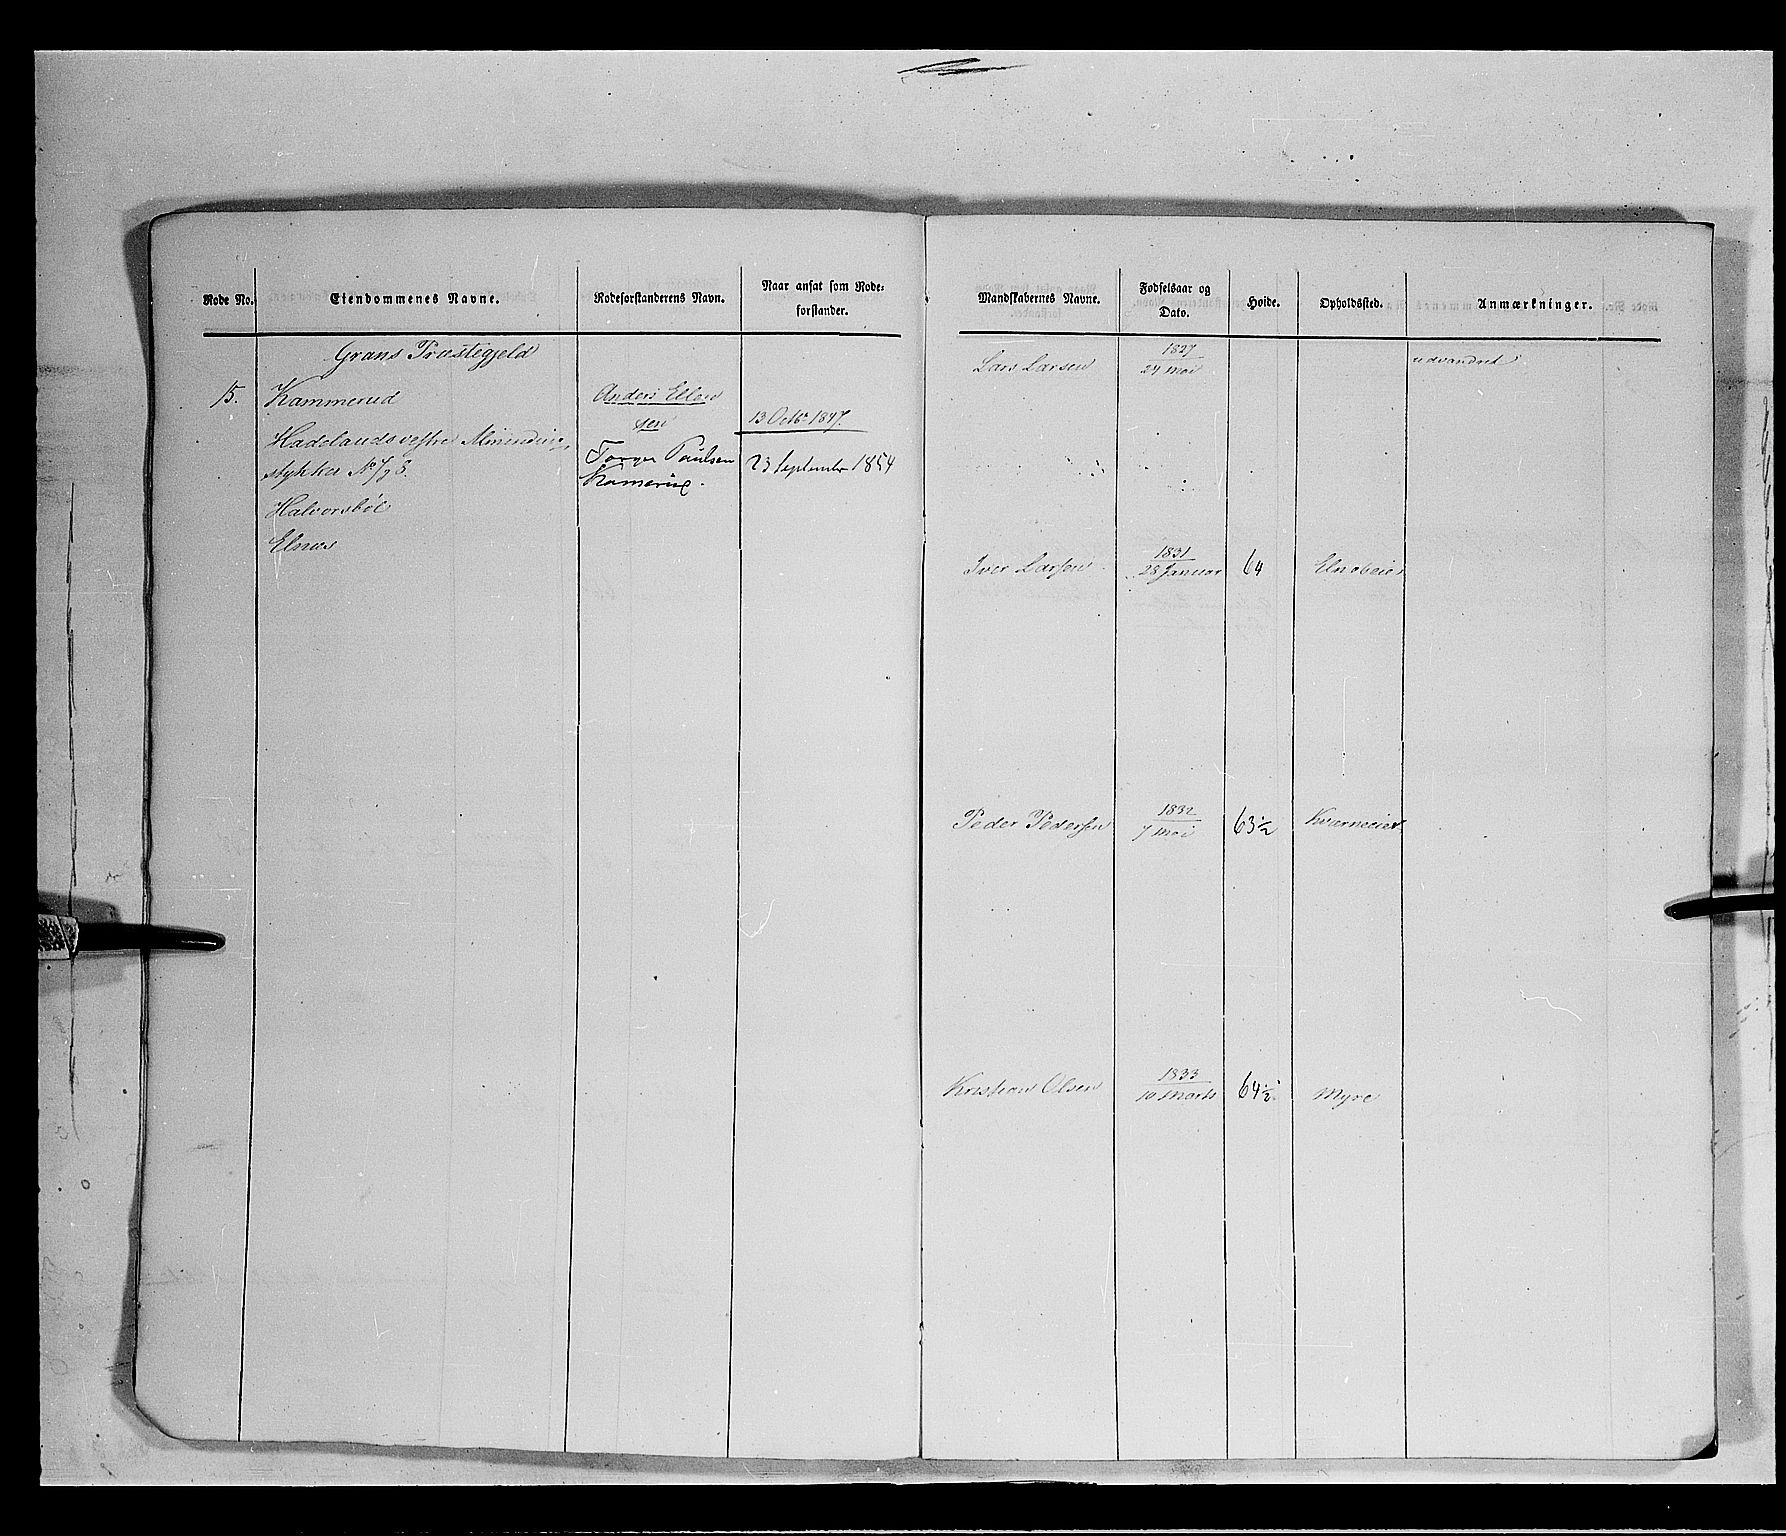 Rode No.
Eiendommenes Navne.
Rodeforstanderens Navn.
Naar ansat som Rode-
forstander.
Grans Præstegjeld
15.
Kammerud
Hadelands vestre Alminding
stykker No 7/8.
Halvorsböl
Elnæs
Anders Ellew
sen
13 Octbr 1847.
Torger Paulsen
Kamerud.
23 September 1854
Mandskabernes Navne.
Fødselsaar og
Dato.
Høide.
Opholdssted.
Anmærkninger.
Lars Larsen
1827
24 Mai
udvandret
Iver Larsen
1831
28 Januar
64
Elnæseiet
Peder Pedersen
1832
7 Mai
63 1/2
Kværneiet
Kristian Olsen
1833
10 Marts
64 1/2
Myre